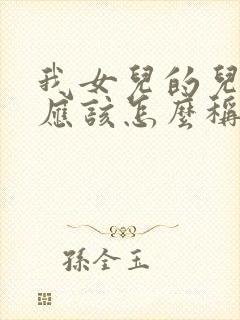 我女兒的兒
應該怎麼稱
孫全玉